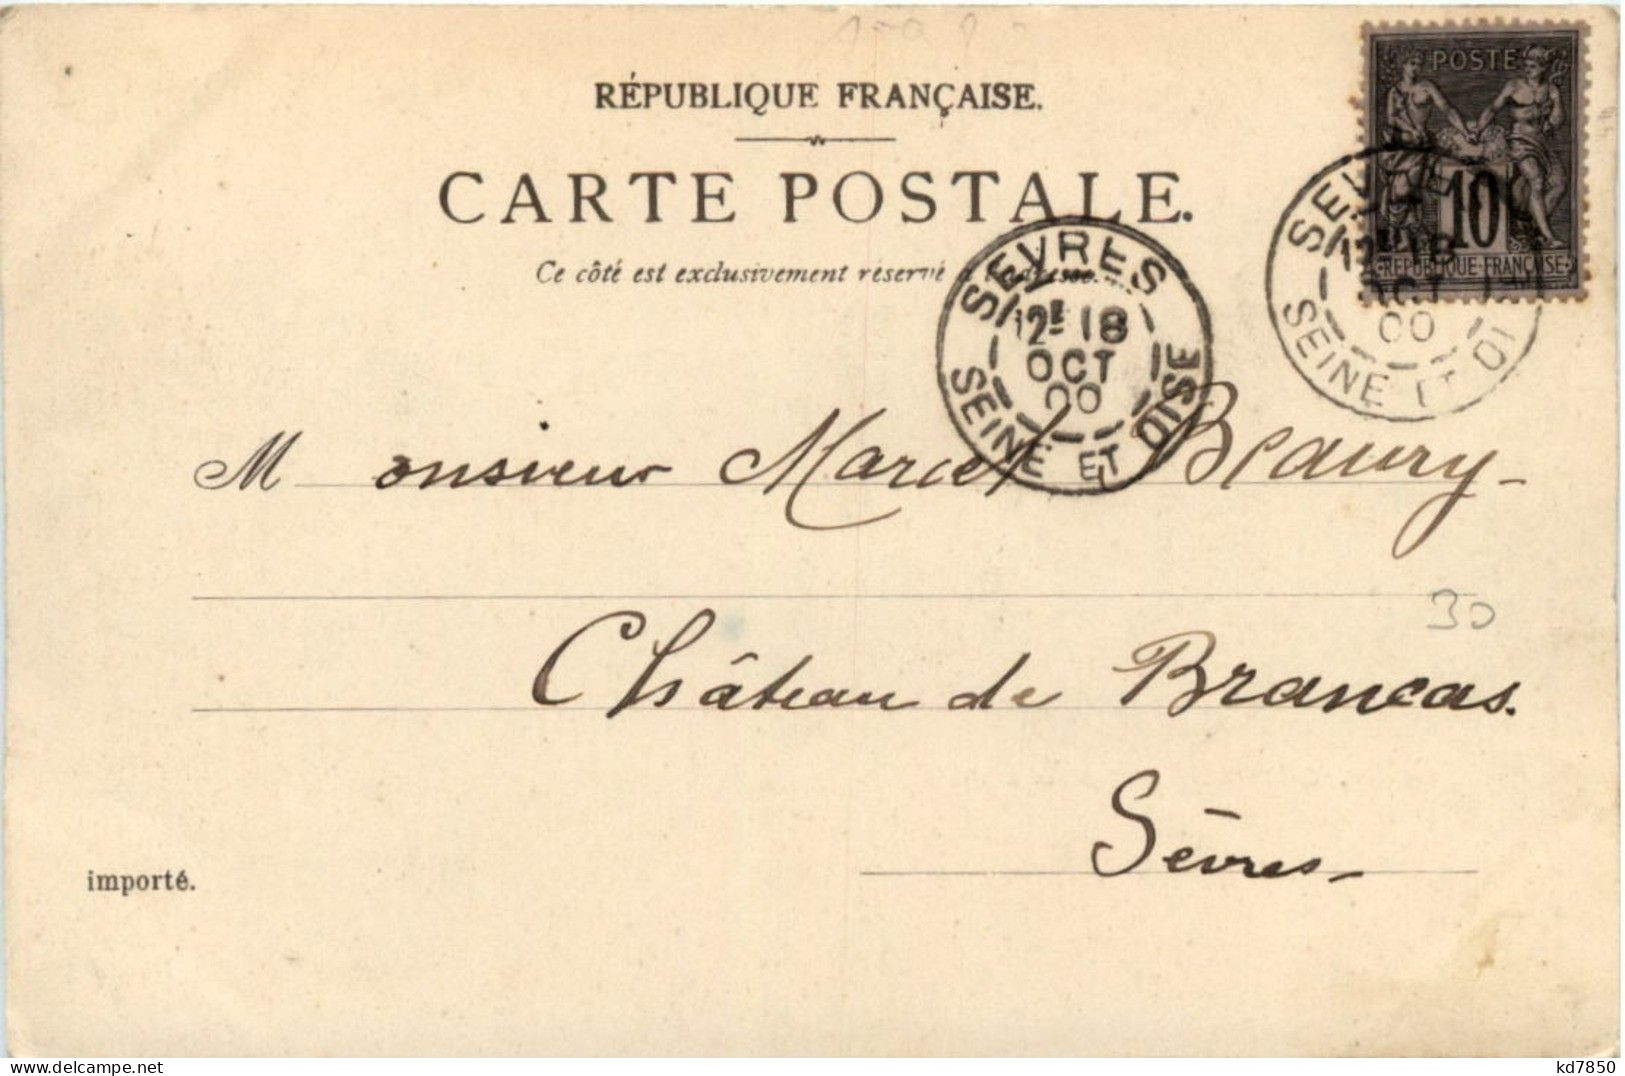 RÉPUBLIQUE FRANÇAISE.
CARTE POSTALE.
Ce côté est exclusivement réservé à l'adresse.
POSTE
10
RÉPUBLIQUE FRANÇAISE
SEVRES
12E 18
OCT
00
SEINE ET OISE
SEVRES
12E 18
OCT
00
SEINE ET OISE
Monsieur Marcel Beaury-
30
Château de Brancas.
Sèvres-
importé.
delcampe.net
kd7850